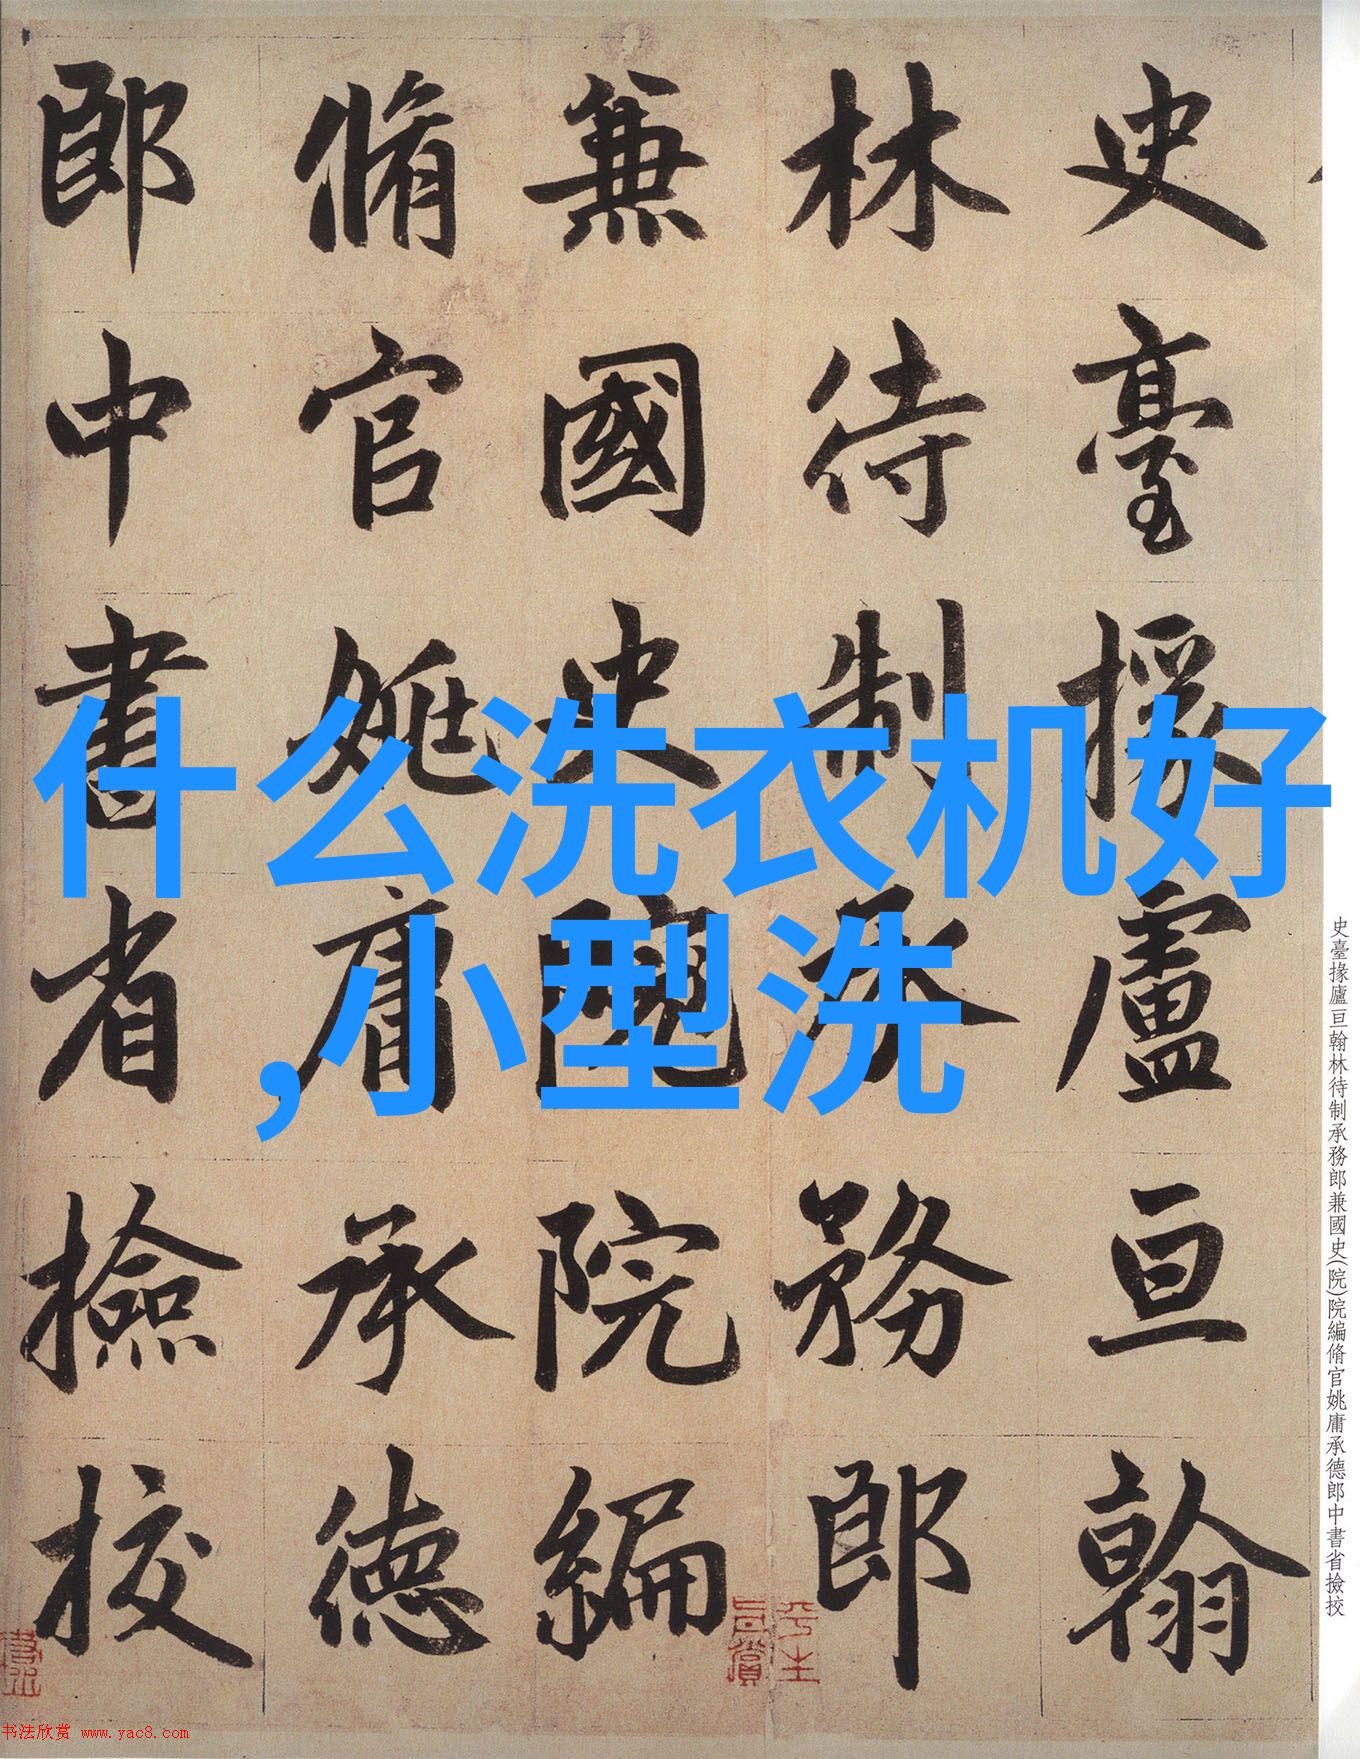 史臺掾盧亘翰
林待制承務郎
兼國史院院編
脩官姚庸承德
郎中書省撿挍
什么洗衣机好
,小型洗
史臺掾盧亘翰林待制承務郎兼國史(院)院編脩官姚庸承德郎中書省撿挍
书法欣赏 www.yac8.com